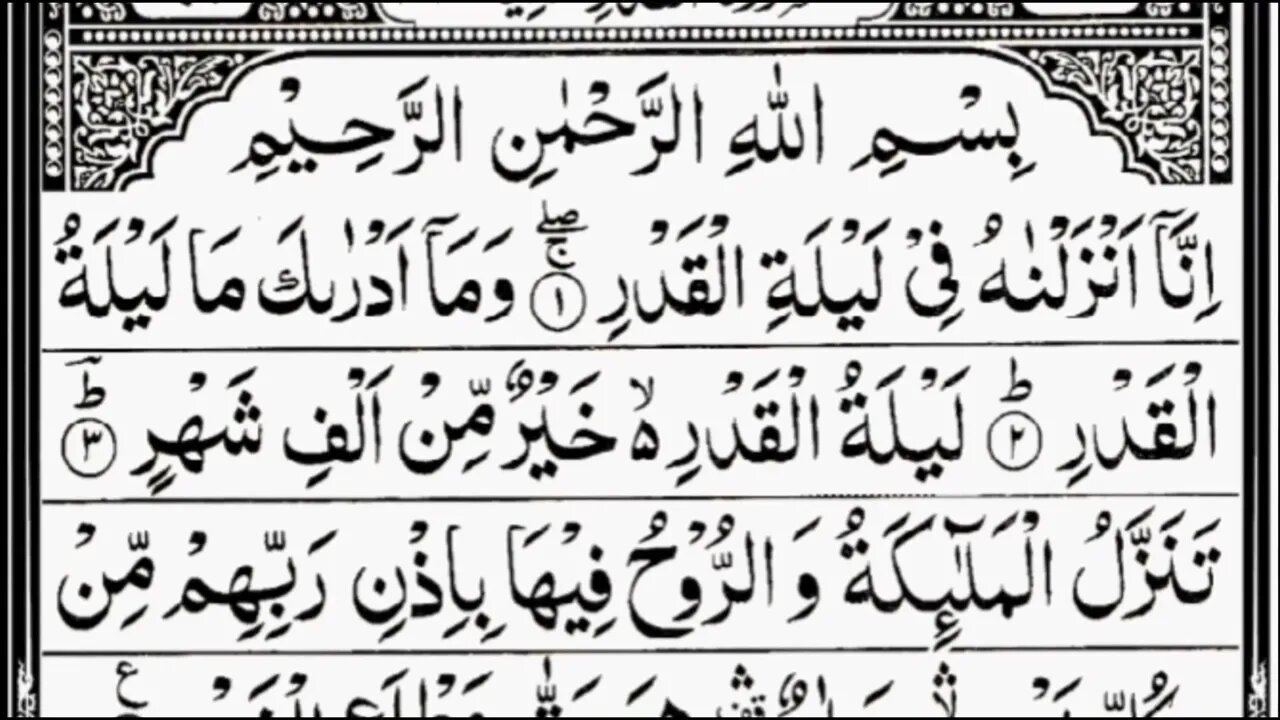 بِسْمِ اللهِ الرَّحْمٰنِ الرَّحِيْمِ
اِنَّاۤ اَنْزَلْنٰهُ فِيْ لَيْلَةِ الْقَدْرِ ۚۖ ﴿۱﴾ وَمَاۤ اَدْرٰىكَ مَا لَيْلَةُ
الْقَدْرِ ؕ ﴿۲﴾ لَيْلَةُ الْقَدْرِ ۵ۙ خَيْرٌ مِّنْ اَلْفِ شَهْرٍ ؕ ﴿۳﴾
تَنَزَّلُ الْمَلٰٓئِكَةُ وَ الرُّوْحُ فِيْهَا بِاِذْنِ رَبِّهِمْ مِّنْ